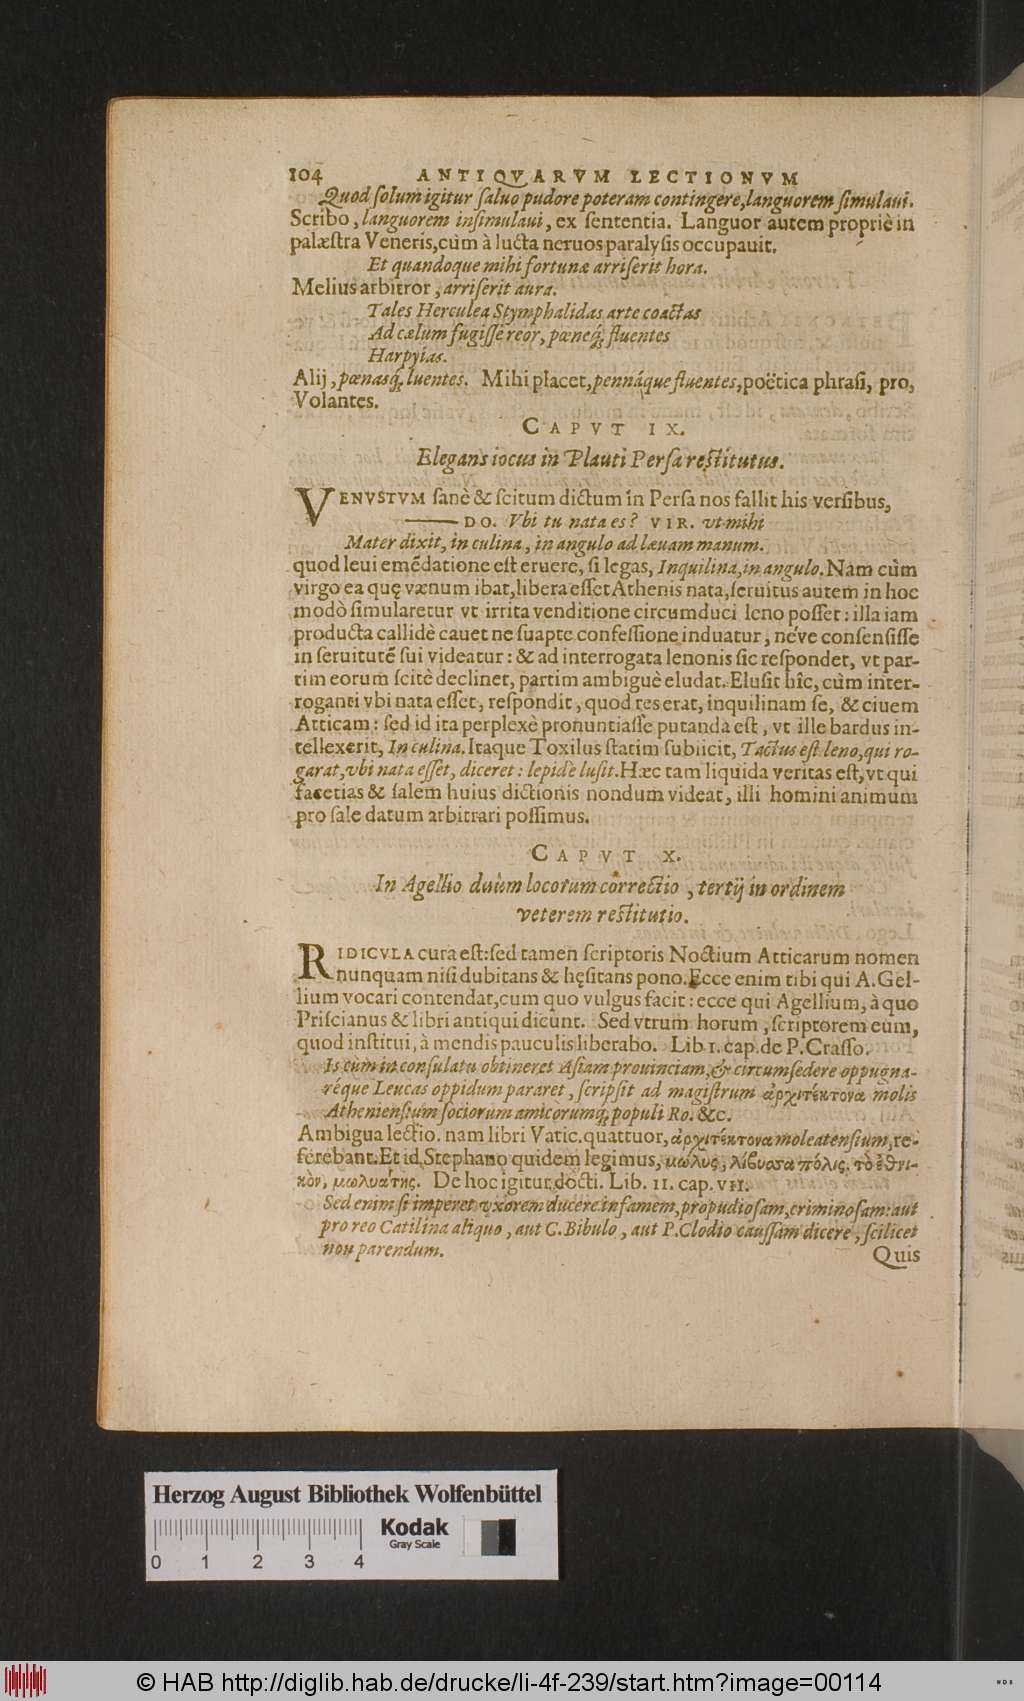 104 ANTIQVARVM LECTIONVM
Quod solum igitur saluo pudore poteram contingere, languorem simulaui.
Scribo, languorem insimulaui, ex sententia. Languor autem propriè in
palæstra Veneris, cùm à lucta neruos paralysis occupauit.
Et quandoque mihi fortunæ arriserit hora.
Melius arbitror, arriserit aura.
Tales Herculea Stymphalidas arte coactas
Ad cælum fugisse reor, pœneq́; fluentes
Harpyias.
Alij, pœnasq́; luentes. Mihi placet, pennáque fluentes, poëtica phrasi, pro,
Volantes.
CAPVT IX.
Elegans iocus in Plauti Persa restitutus.
VENVSTVM sanè & scitum dictum in Persa nos fallit his versibus,
—— DO. Vbi tu nata es? VIR. vt mihi
Mater dixit, in culina, in angulo ad læuam manum.
quod leui emẽdatione est eruere, si legas, Inquilina, in angulo. Nam cùm
virgo ea quę vænum ibat, libera esset Athenis nata, seruitus autem in hoc
modò simularetur vt irrita venditione circumduci leno posset: illa iam
producta callidè cauet ne suapte confessione induatur, néve consensisse
in seruitutẽ sui videatur: & ad interrogata lenonis sic respondet, vt par-
tim eorum scitè declinet, partim ambiguè eludat. Elusit hîc, cùm inter-
roganti vbi nata esset, respondit, quod res erat, inquilinam se, & ciuem
Atticam: sed id ita perplexè pronuntiasse putanda est, vt ille bardus in-
tellexerit, In culina. Itaque Toxilus statim subiicit, Tactus est leno, qui ro-
garat, vbi nata esset, diceret: lepidè lusit. Hæc tam liquida veritas est, vt qui
facetias & salem huius dictionis nondum videat, illi homini animum
pro sale datum arbitrari possimus.
CAPVT X.
In Agellio duûm locorum correctio, tertij in ordinem
veterem restitutio.
RIDICVLA cura est: sed tamen scriptoris Noctium Atticarum nomen
nunquam nisi dubitans & hęsitans pono. Ecce enim tibi qui A. Gel-
lium vocari contendat, cum quo vulgus facit: ecce qui Agellium, à quo
Priscianus & libri antiqui dicunt. Sed vtrum horum, scriptorem eum,
quod institui, à mendis pauculis liberabo. Lib 1. cap. de P. Crasso.
Is cùm in consulatu obtineret Asiam prouinciam, & circumsedere oppugna-
réque Leucas oppidum pararet, scripsit ad magistrum ἀρχιτέκτονα molis
Atheniensium sociorum amicorumq́; populi Ro. &c.
Ambigua lectio. nam libri Vatic. quattuor, ἀρχιτέκτονα moleatensium, re-
ferebant. Et id Stephano quidem legimus, μώλυς, λίβυσσα πόλις. τὸ ἐθνι-
κὸν, μωλυάτης. De hoc igitur docti. Lib. 11. cap. VII.
Sed enim si imperet vxorem ducere infamem, propudiosam, criminosam: aut
pro reo Catilina aliquo, aut C. Bibulo, aut P. Clodio caussam dicere, scilicet
non parendum.
Quis
Herzog August Bibliothek Wolfenbüttel
Kodak
Gray Scale
0 1 2 3 4
© HAB http://diglib.hab.de/drucke/li-4f-239/start.htm?image=00114